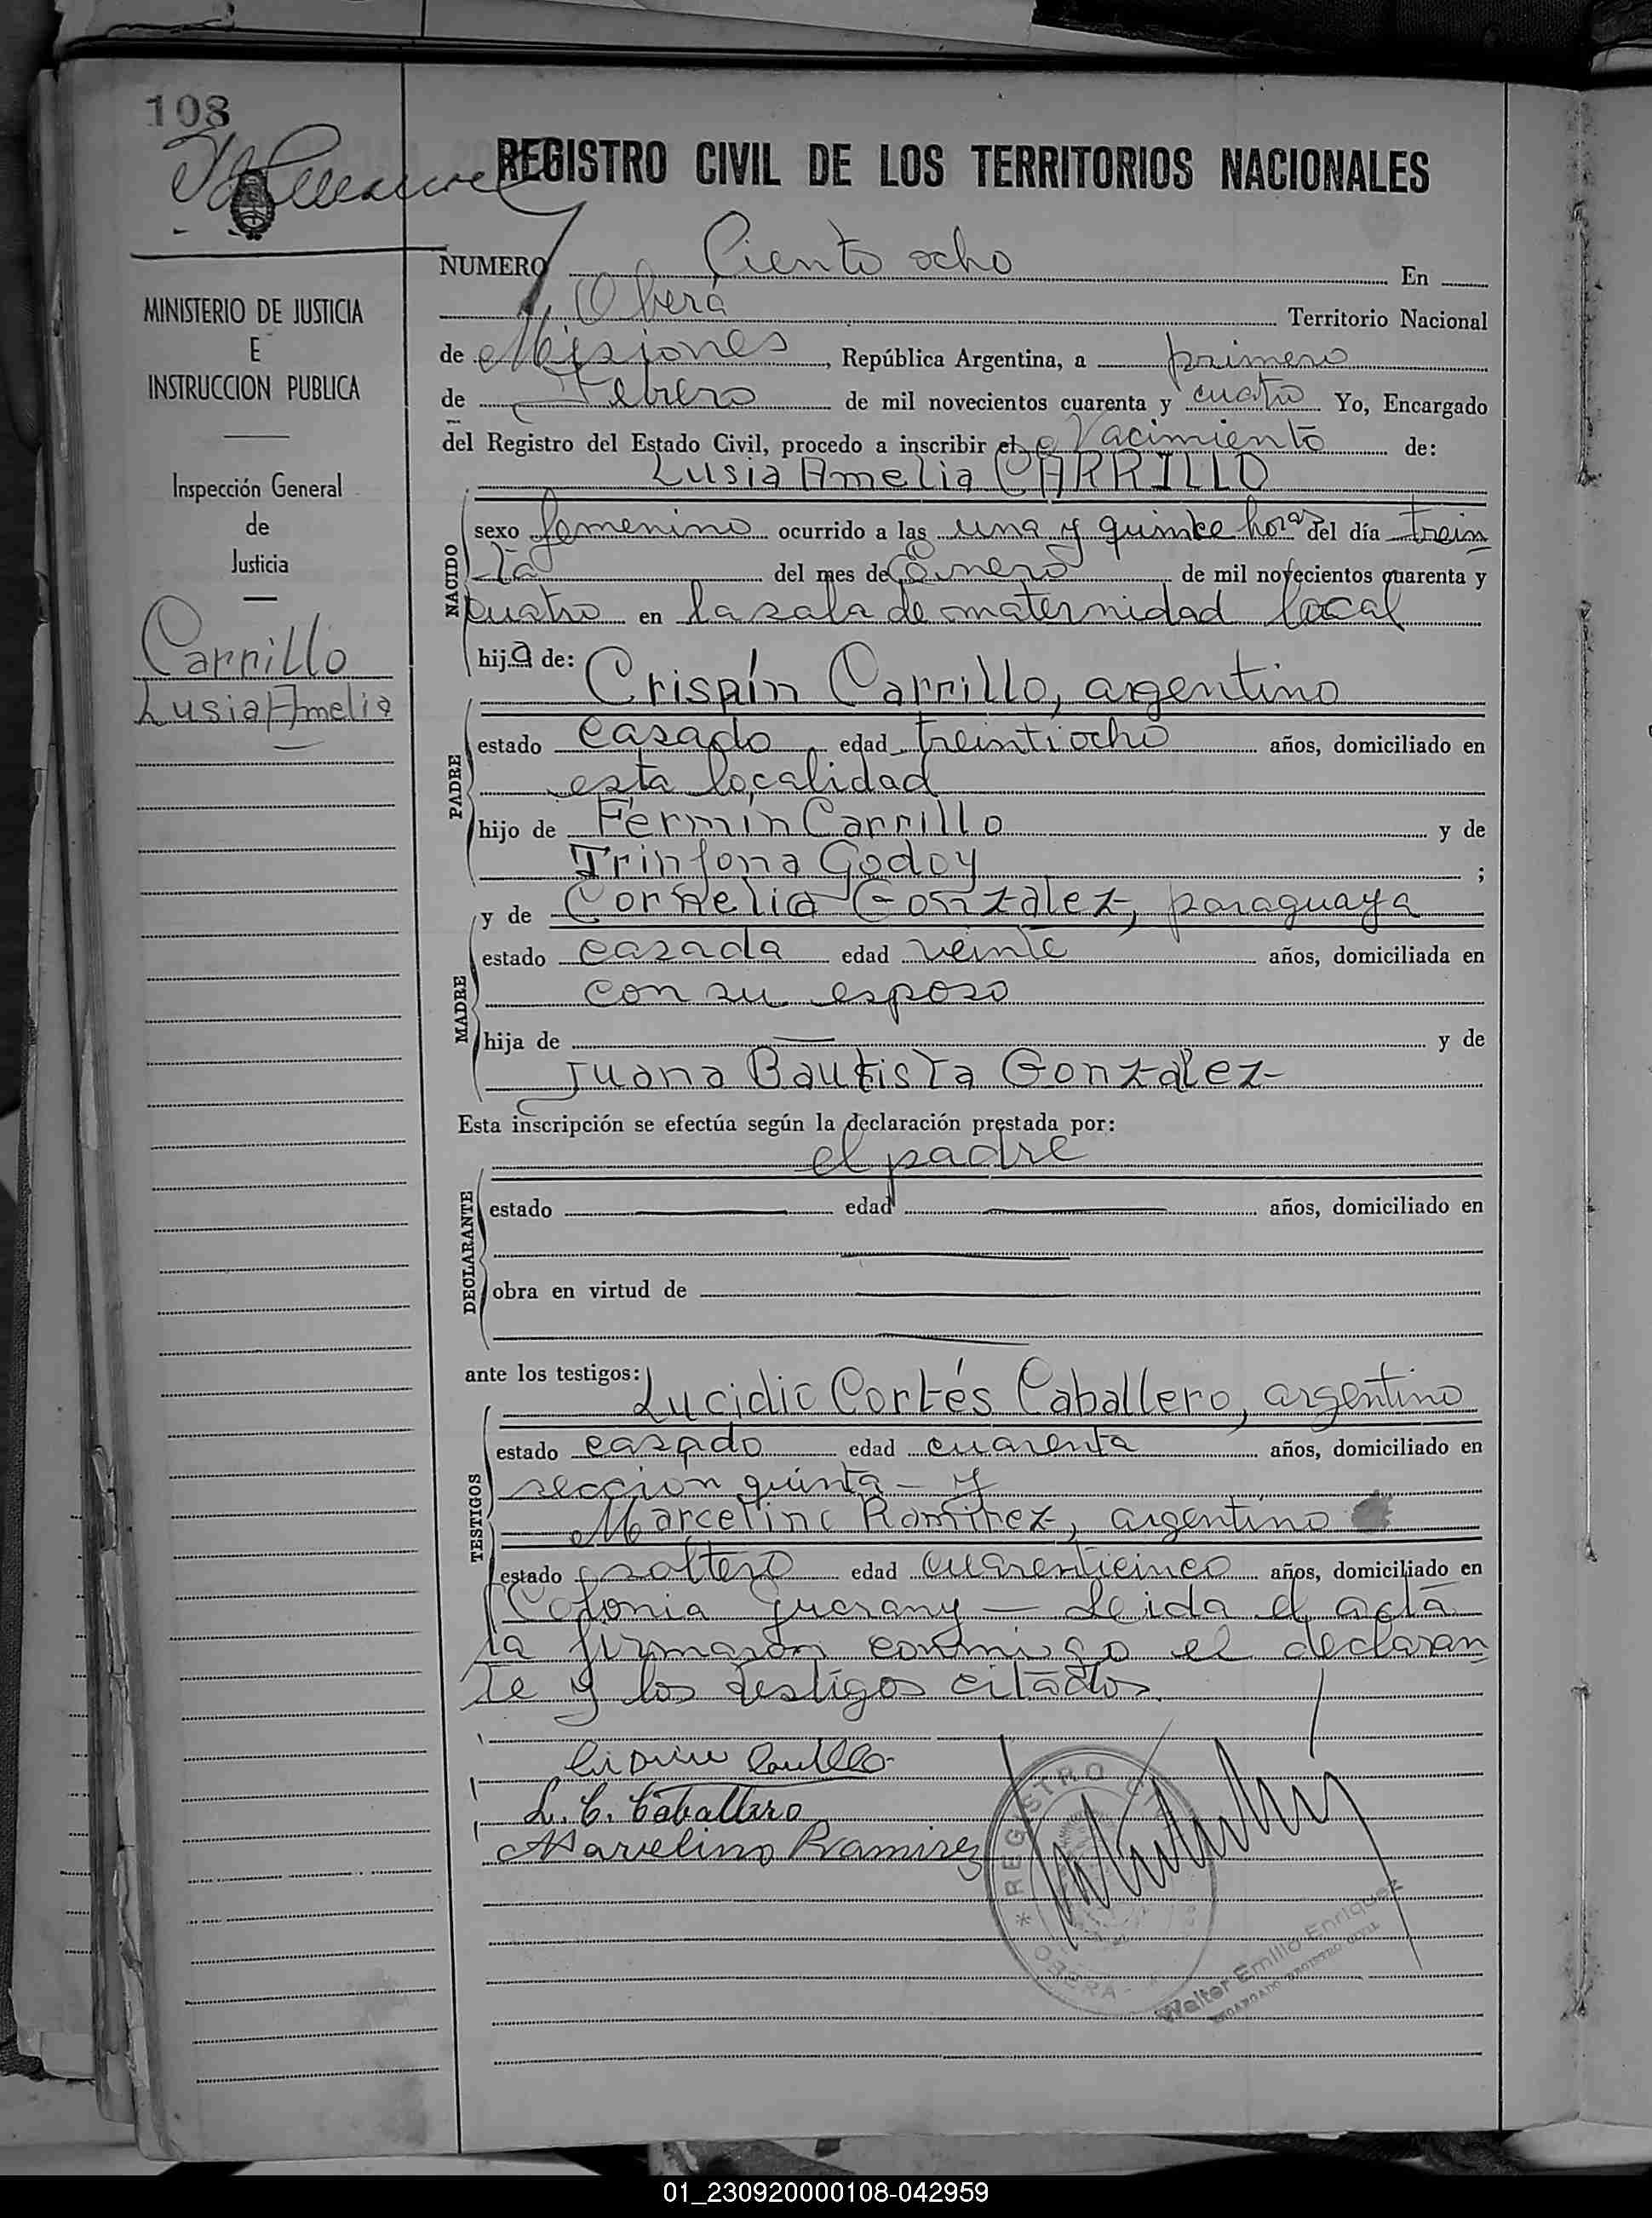 108
REGISTRO CIVIL DE LOS TERRITORIOS NACIONALES
NUMERO Ciento ocho En
Oberá Territorio Nacional
de Misiones, República Argentina, a primero
de Febrero de mil novecientos cuarenta y cuatro Yo, Encargado
del Registro del Estado Civil, procedo a inscribir el Nacimiento de:
Lusia Amelia CARRILLO
MINISTERIO DE JUSTICIA
E
INSTRUCCION PUBLICA
Inspección General
de
Justicia
Carrillo
Lusia Amelia
NACIDO
sexo femenino ocurrido a las una y quince horas del día trein
ta del mes de Enero de mil novecientos cuarenta y
cuatro en la sala de maternidad local
hija de: Crispín Carrillo, argentino
PADRE
estado casado edad treintiocho años, domiciliado en
esta localidad
hijo de Fermín Carrillo y de
Trinfona Godoy ;
MADRE
y de Cornelia Gonzalez, paraguaya
estado casada edad veinte años, domiciliada en
con su esposo
hija de — y de
Juana Bautista Gonzalez
Esta inscripción se efectúa según la declaración prestada por:
el padre
DECLARANTE
estado — edad — años, domiciliado en
obra en virtud de —
ante los testigos: Lucidio Cortés Caballero, argentino
TESTIGOS
estado casado edad cuarenta años, domiciliado en
seccion quinta - y
Marcelino Romirez, argentino
estado soltero edad cuarenticinco años, domiciliado en
Colonia Guarany — Leida el acta
la firmaron conmigo el declaran
te y los testigos citados.
Carrillo
L. C. Caballero
Marcelino Ramirez
* REGISTRO CIVIL
OBERA
Walter Emilio Enriquez
ENCARGADO REGISTRO CIVIL
01_230920000108-042959